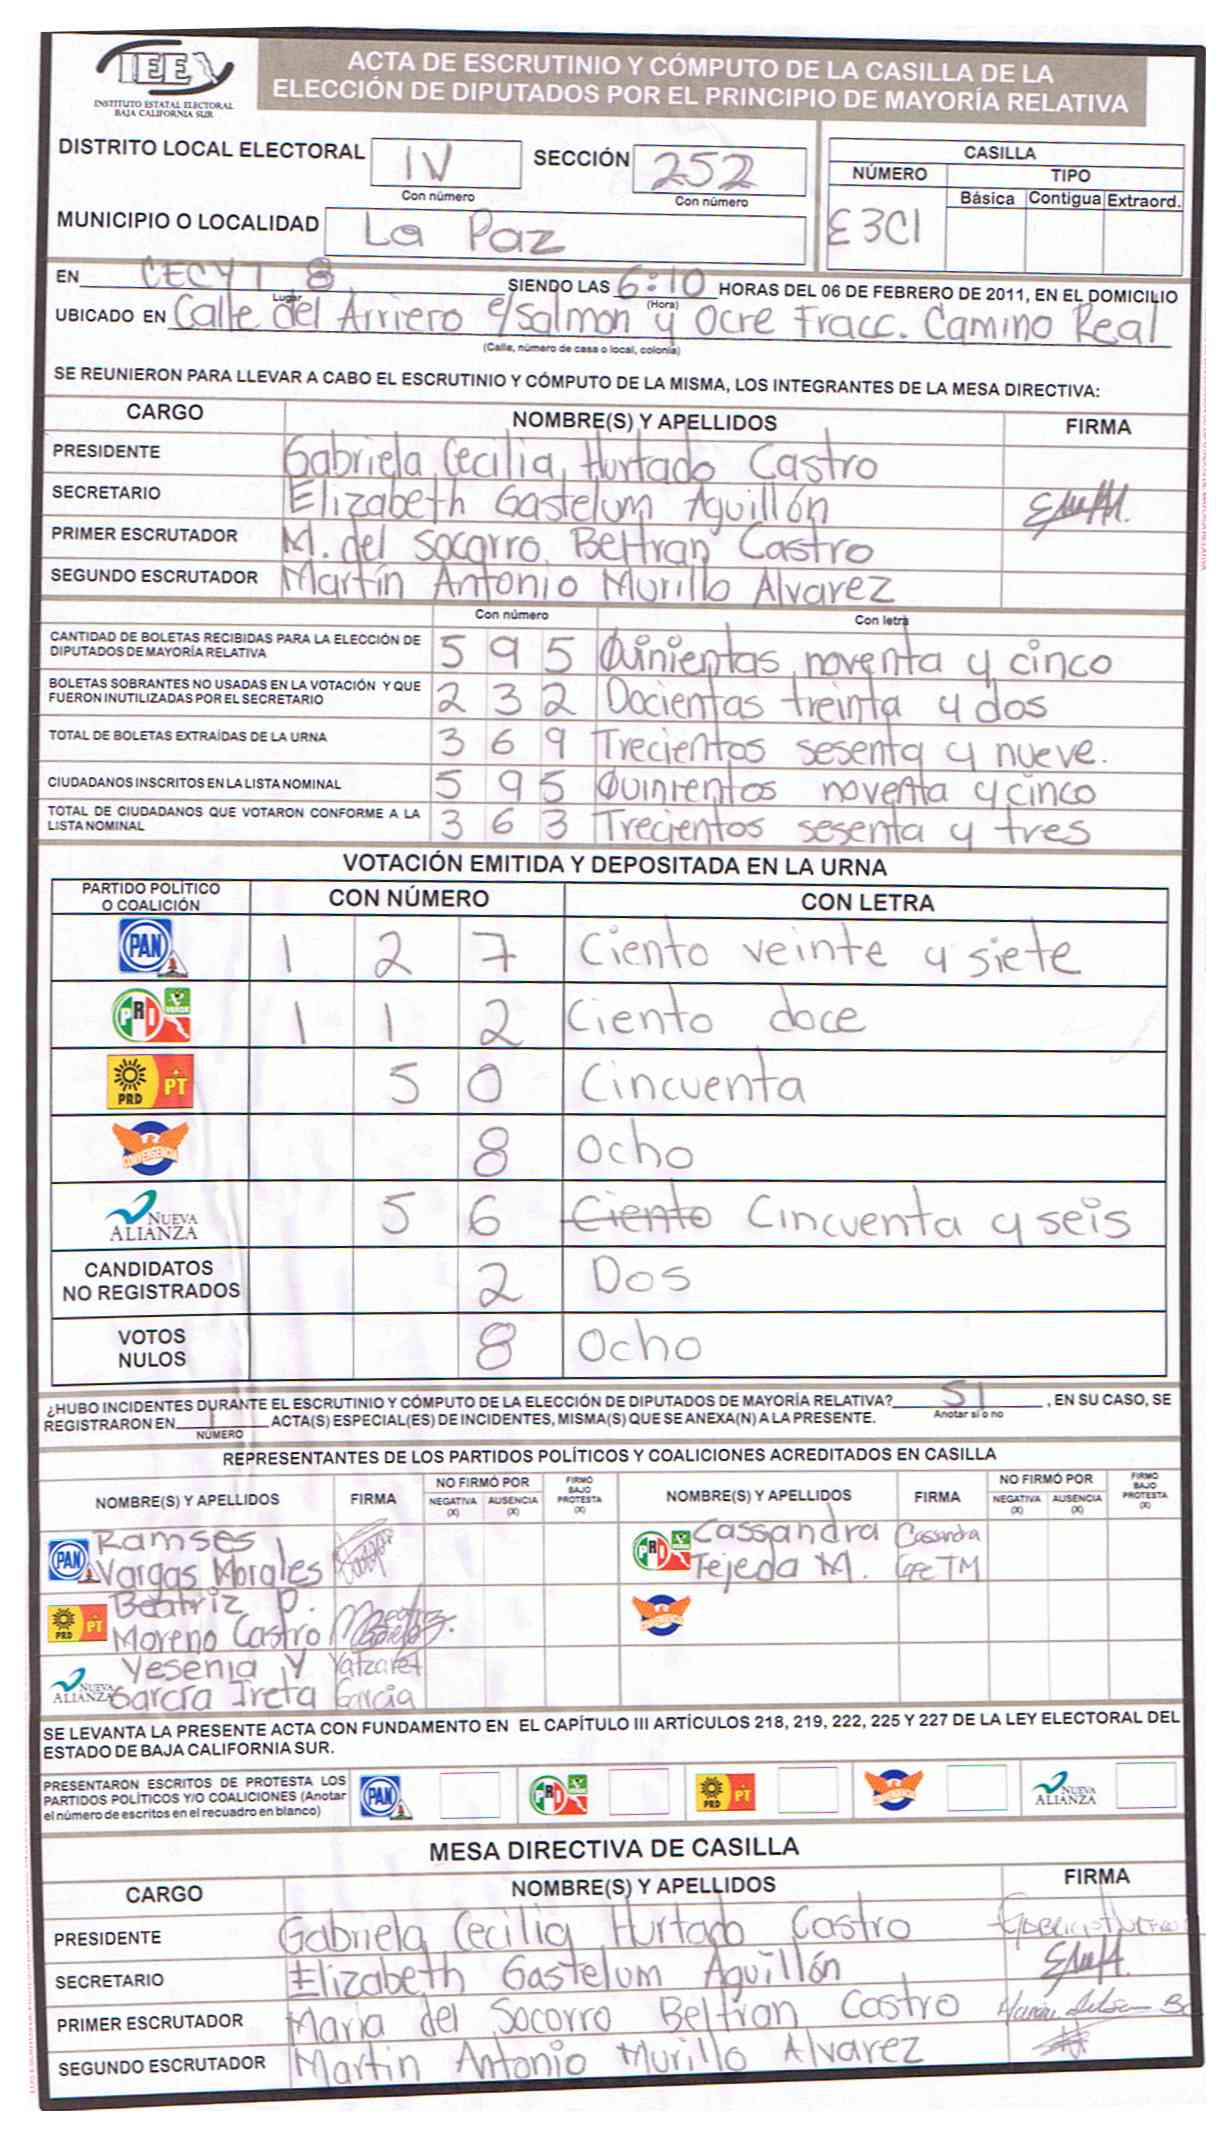 IEE
INSTITUTO ESTATAL ELECTORAL
BAJA CALIFORNIA SUR
ACTA DE ESCRUTINIO Y CÓMPUTO DE LA CASILLA DE LA
ELECCIÓN DE DIPUTADOS POR EL PRINCIPIO DE MAYORÍA RELATIVA
DISTRITO LOCAL ELECTORAL IV SECCIÓN 252
Con número Con número
MUNICIPIO O LOCALIDAD La Paz
CASILLA
NÚMERO TIPO
Básica Contigua Extraord.
E3C1
EN CECYT 8 SIENDO LAS 6:10 HORAS DEL 06 DE FEBRERO DE 2011, EN EL DOMICILIO
Lugar (Hora)
UBICADO EN Calle del Arriero e/Salmon y Ocre Fracc. Camino Real
(Calle, número de casa o local, colonia)
SE REUNIERON PARA LLEVAR A CABO EL ESCRUTINIO Y CÓMPUTO DE LA MISMA, LOS INTEGRANTES DE LA MESA DIRECTIVA:
CARGO NOMBRE(S) Y APELLIDOS FIRMA
PRESIDENTE Gabriela Cecilia Hurtado Castro
SECRETARIO Elizabeth Gastelum Aguillón
PRIMER ESCRUTADOR M. del Socorro Beltran Castro
SEGUNDO ESCRUTADOR Martín Antonio Murillo Alvarez
Con número Con letra
CANTIDAD DE BOLETAS RECIBIDAS PARA LA ELECCIÓN DE
DIPUTADOS DE MAYORÍA RELATIVA 5 9 5 Quinientas noventa y cinco
BOLETAS SOBRANTES NO USADAS EN LA VOTACIÓN Y QUE
FUERON INUTILIZADAS POR EL SECRETARIO 2 3 2 Docientas treinta y dos
TOTAL DE BOLETAS EXTRAÍDAS DE LA URNA 3 6 9 Trecientos sesenta y nueve.
CIUDADANOS INSCRITOS EN LA LISTA NOMINAL 5 9 5 Quinientos noventa y cinco
TOTAL DE CIUDADANOS QUE VOTARON CONFORME A LA
LISTA NOMINAL 3 6 3 Trecientos sesenta y tres
VOTACIÓN EMITIDA Y DEPOSITADA EN LA URNA
PARTIDO POLÍTICO
O COALICIÓN CON NÚMERO CON LETRA
PAN 1 2 7 Ciento veinte y siete
PRI VERDE 1 1 2 Ciento doce
PRD PT 5 0 Cincuenta
CONVERGENCIA 8 Ocho
NUEVA ALIANZA 5 6 Ciento Cincuenta y seis
CANDIDATOS
NO REGISTRADOS 2 Dos
VOTOS
NULOS 8 Ocho
¿HUBO INCIDENTES DURANTE EL ESCRUTINIO Y CÓMPUTO DE LA ELECCIÓN DE DIPUTADOS DE MAYORÍA RELATIVA? SI , EN SU CASO, SE
Anotar sí o no
REGISTRARON EN 1 ACTA(S) ESPECIAL(ES) DE INCIDENTES, MISMA(S) QUE SE ANEXA(N) A LA PRESENTE.
NÚMERO
REPRESENTANTES DE LOS PARTIDOS POLÍTICOS Y COALICIONES ACREDITADOS EN CASILLA
NOMBRE(S) Y APELLIDOS FIRMA NO FIRMÓ POR NEGATIVA (X) AUSENCIA (X) FIRMÓ BAJO PROTESTA (X) NOMBRE(S) Y APELLIDOS FIRMA NO FIRMÓ POR NEGATIVA (X) AUSENCIA (X) FIRMÓ BAJO PROTESTA (X)
PAN Ramses PRI Cassandra Cassandra
Vargas Morales Tejeda M. TM
PRD PT Beatriz P. CONVERGENCIA
Moreno Castro
NUEVA ALIANZA Yesenia Y Yatzaret
García Ireta García
SE LEVANTA LA PRESENTE ACTA CON FUNDAMENTO EN EL CAPÍTULO III ARTÍCULOS 218, 219, 222, 225 Y 227 DE LA LEY ELECTORAL DEL
ESTADO DE BAJA CALIFORNIA SUR.
PRESENTARON ESCRITOS DE PROTESTA LOS
PARTIDOS POLÍTICOS Y/O COALICIONES (Anotar
el número de escritos en el recuadro en blanco)
PAN PRI PRD PT CONVERGENCIA NUEVA ALIANZA
MESA DIRECTIVA DE CASILLA
CARGO NOMBRE(S) Y APELLIDOS FIRMA
PRESIDENTE Gabriela Cecilia Hurtado Castro
SECRETARIO Elizabeth Gastelum Aguillón
PRIMER ESCRUTADOR Maria del Socorro Beltran Castro
SEGUNDO ESCRUTADOR Martin Antonio Murillo Alvarez